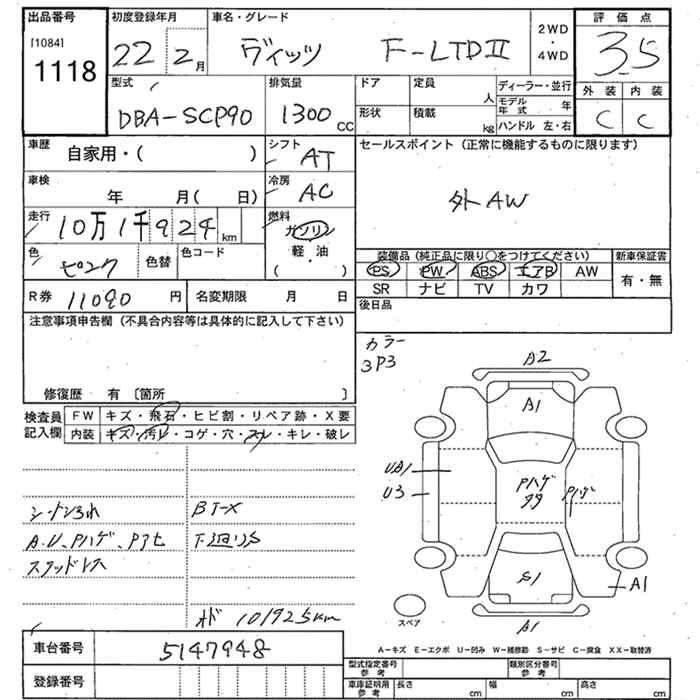 出品番号 初度登録年月 車名・グレード 評価点
[1084] 1118 22年 2月 ヴィッツ F-LTDⅡ 2WD・4WD 3.5
型式 排気量 ドア 定員 人 ディーラー・並行 外装 内装
DBA-SCP90 1300 CC 形状 積載 kg モデル年式 年 ハンドル 左・右 C C
車歴 自家用・( ) シフト AT セールスポイント (正常に機能するものに限ります)
車検 年 月( 日) 冷房 AC 外AW
走行 10万1千924km 燃料 ガソリン 軽・油 ( )
色 ピンク 色替 色コード
装備品 (純正品に限り○をつけてください) 新車保証書
PS PW ABS エアB AW 有・無
SR ナビ TV カワ
R券 11090 円 名変期限 月 日 後日品
注意事項申告欄 (不具合内容等は具体的に記入して下さい)
修復歴 有 〔箇所 〕
検査員記入欄 FW キズ・飛石・ヒビ割・リペア跡・X要
内装 キズ・汚レ・コゲ・穴・スレ・キレ・破レ
カラー
3P3
A2
A1
UA1
U3
Pハゲ
Pハゲ
S1
A1
A1
スペア
BTX
A.U、Pハゲ、Pアセ 下廻りS
スタッドレス
メド 101925km
A－キズ E－エクボ U－凹み W－補修跡 S－サビ C－腐食 XX－取替済
車台番号 5147948
登録番号
型式指定番号 参考 類別区分番号 参考
車庫証明用 参考 長さ cm 幅 cm 高さ cm